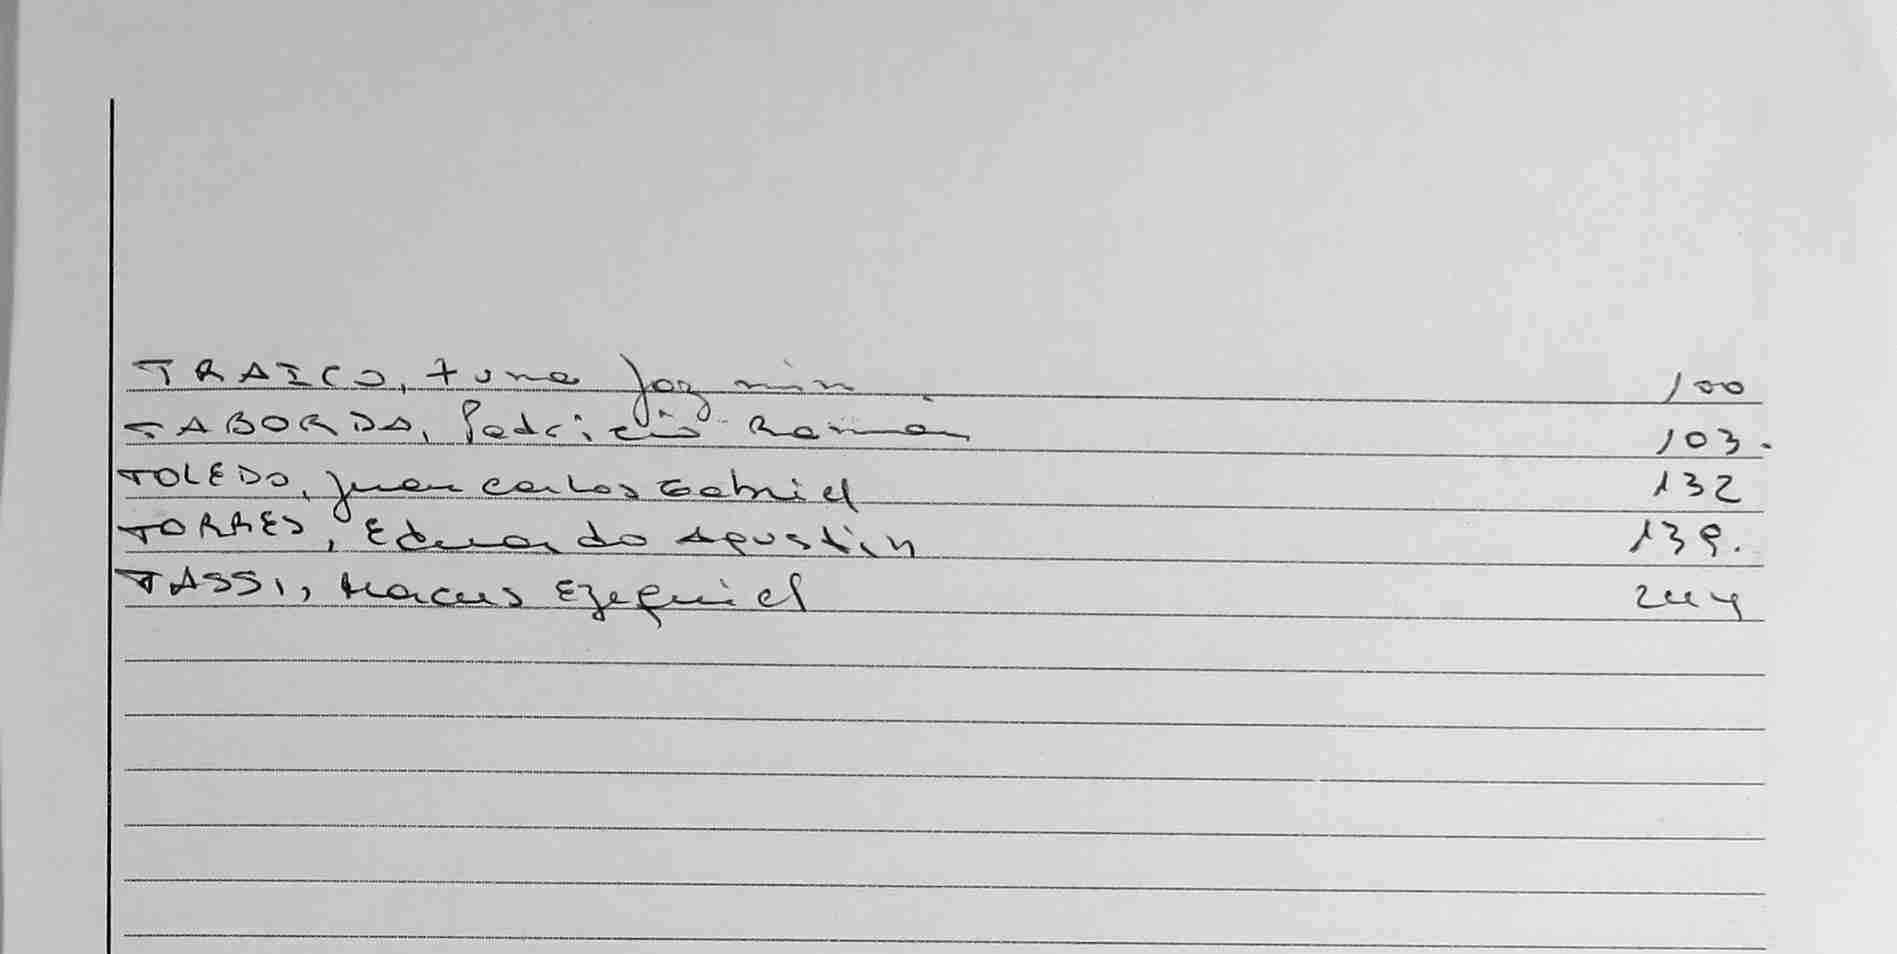 TRAICO, Jazmin 100
TABORDA, Patricio Ramón 103.
TOLEDO, Juan Carlos Gabriel 132
TORRES, Eduardo Agustin 139.
TASSI, Marcos Ezequiel 244